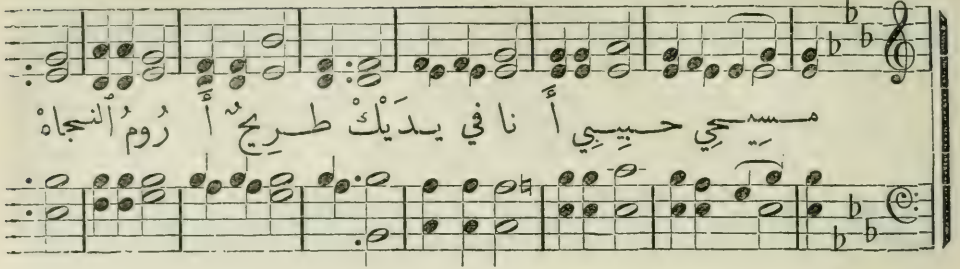 مسيحِي حبِيبِي أَ نا في يدَيْكْ طرِيحٌ أَ رُومُ ٱلنجاهْ